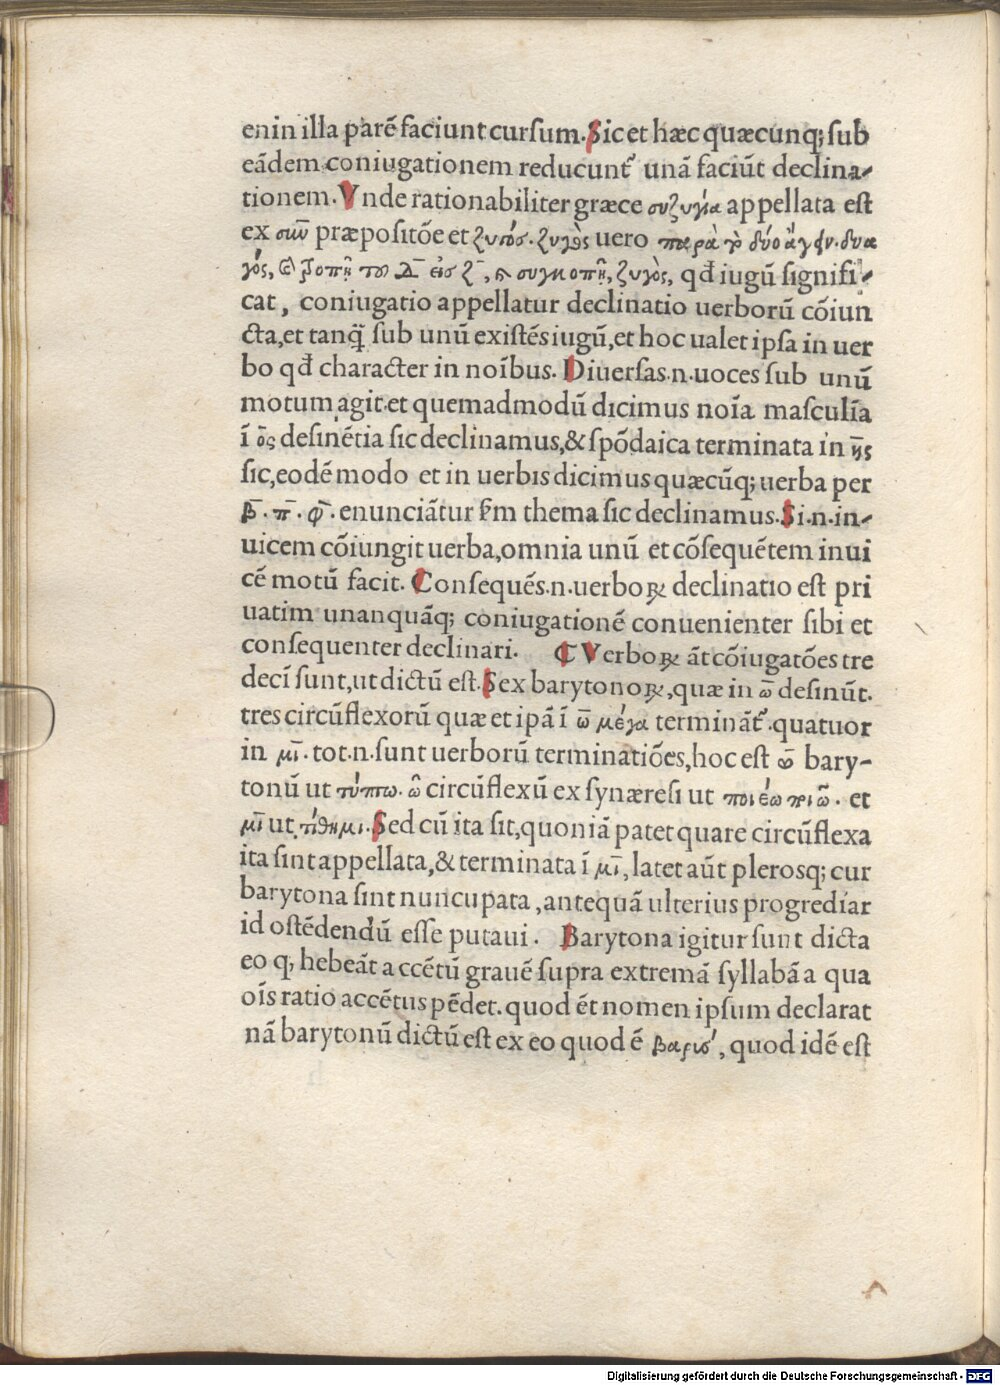 enin illa parē faciunt cursum. Sic et hæc quæcunq; sub
eādem coniugationem reducunt᷑ unā faciūt declina-
tionem. Vnde rationabiliter græce συζυγία appellata est
ex σιω̄ præpositōe et ζυγός. ζυγὸς uero παρὰ τὸ δύο ἄγ̄ν. δυα
γός, ϗ̀ τροπῆ τοῦ δ̄ εἰσ ζ̄, ϗ συγκοπῆ, ζυγὸς, qđ iugū signifi-
cat, coniugatio appellatur declinatio uerborū cōiun
cta, et tanq̄ sub unū existēs iugū, et hoc ualet ipsa in uer
bo qđ character in noībus. Diuersas.n.uoces sub unū
motum agit. et quemadmodū dicimus noīa masculīa
ī ο̄ς desinētia sic declinamus, & spōdaica terminata in η̄ς
sic, eodē modo et in uerbis dicimus quæcūq; uerba per
β̄. π̄. φ̄. enunciātur s̄m thema sic declinamus. Si.n.in-
uicem cōiungit uerba, omnia unū et cōsequētem inui
cē motū facit. Consequēs.n.uerboꝝ declinatio est pri
uatim unanquāq; coniugationē conuenienter sibi et
consequenter declinari. ⸿ Verboꝝ āt cōiugatōes tre
decī sunt, ut dictū est. Sex barytonoꝝ, quæ in ω̄ desinūt.
tres circūflexorū quæ et ipā ī ω̄ μέγα termināt᷑. quatuor
in μῑ. tot.n.sunt uerborū terminatiōes, hoc est ω̄ bary-
tonū ut τύπτω. ω̄ circūflexū ex synæresi ut ποιέω ποιῶ. et
μῑ ut τίθημι. Sed cū ita sit, quoniā patet quare circūflexa
ita sint appellata, & terminata ī μῑ, latet aūt plerosq; cur
barytona sint nuncupata, antequā ulterius progrediar
id ostēdendū esse putaui. Barytona igitur sunt dicta
eo q, hebeāt accētū grauē supra extremā syllabā a qua
oīs ratio accētus pēdet. quod ēt nomen ipsum declarat
nā barytonū dictū est ex eo quod ē βαρὺσ, quod idē est
Digitalisierung gefördert durch die Deutsche Forschungsgemeinschaft - DFG